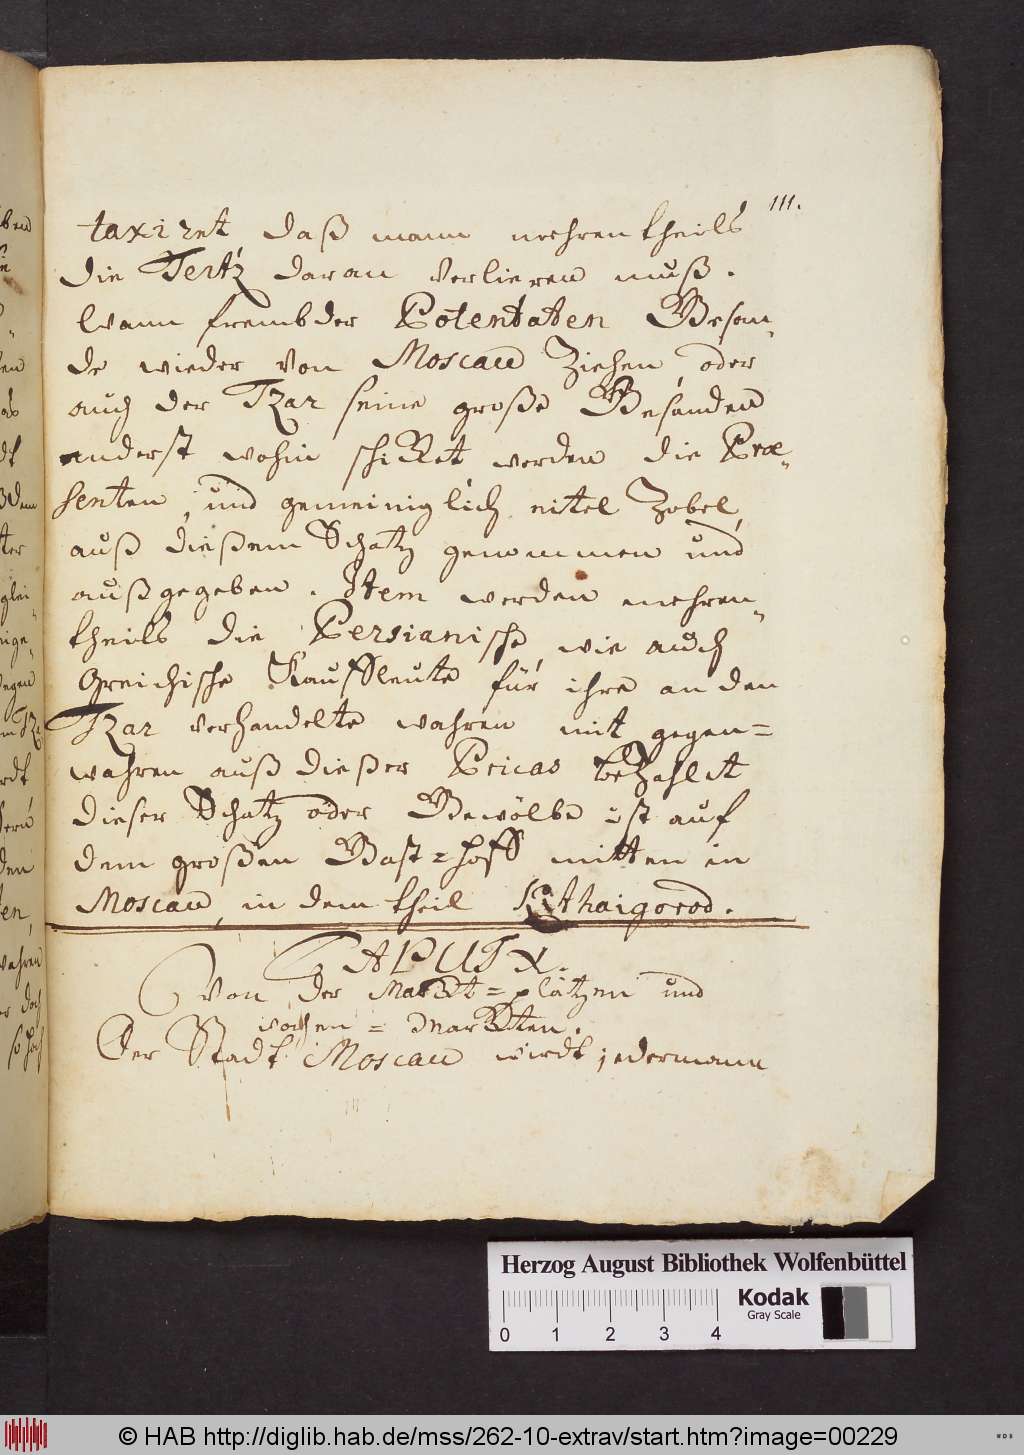 111.
taxiret daß mann mehrentheils
die Tertz daran verlieren muß.
Wann frembder Potentaten Gesan-
de wieder von Moscau Ziehen, oder
auch der Tzar seine große Gesanden
anderst wohin schicket werden die Præ-
senten, und gemeiniglich eitel Zobel,
auß dießem Schatz genommen und
außgegeben. Item werden mehren-
theils die Persianische, wie auch
Greichische Kauffleute für ihre an den
Tzar verhandelte wahren mit gegen=
wahren auß dießer Pricas bezahlt
dieser Schatz oder Gewölbe ist auf
dem großen Gast=hoff mitten in
Moscau, in dem theil Kithaigorod.
CAPUT X.
Von der Marckt=plätzen und
wochen=Marckten.
Der Stadt Moscau wirdt jedermann
Herzog August Bibliothek Wolfenbüttel
Kodak
Gray Scale
0 1 2 3 4
© HAB http://diglib.hab.de/mss/262-10-extrav/start.htm?image=00229